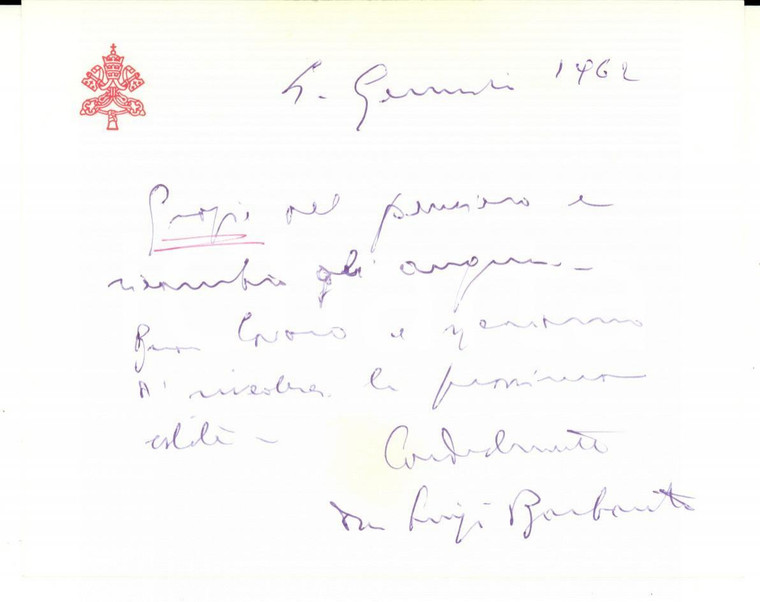 4. Gennaio 1962
Grazie del pensiero e
ricambio gli auguri -
Buon lavoro e speriamo
di rivederci la prossima
estate - Cordialmente
don Luigi Barbarito